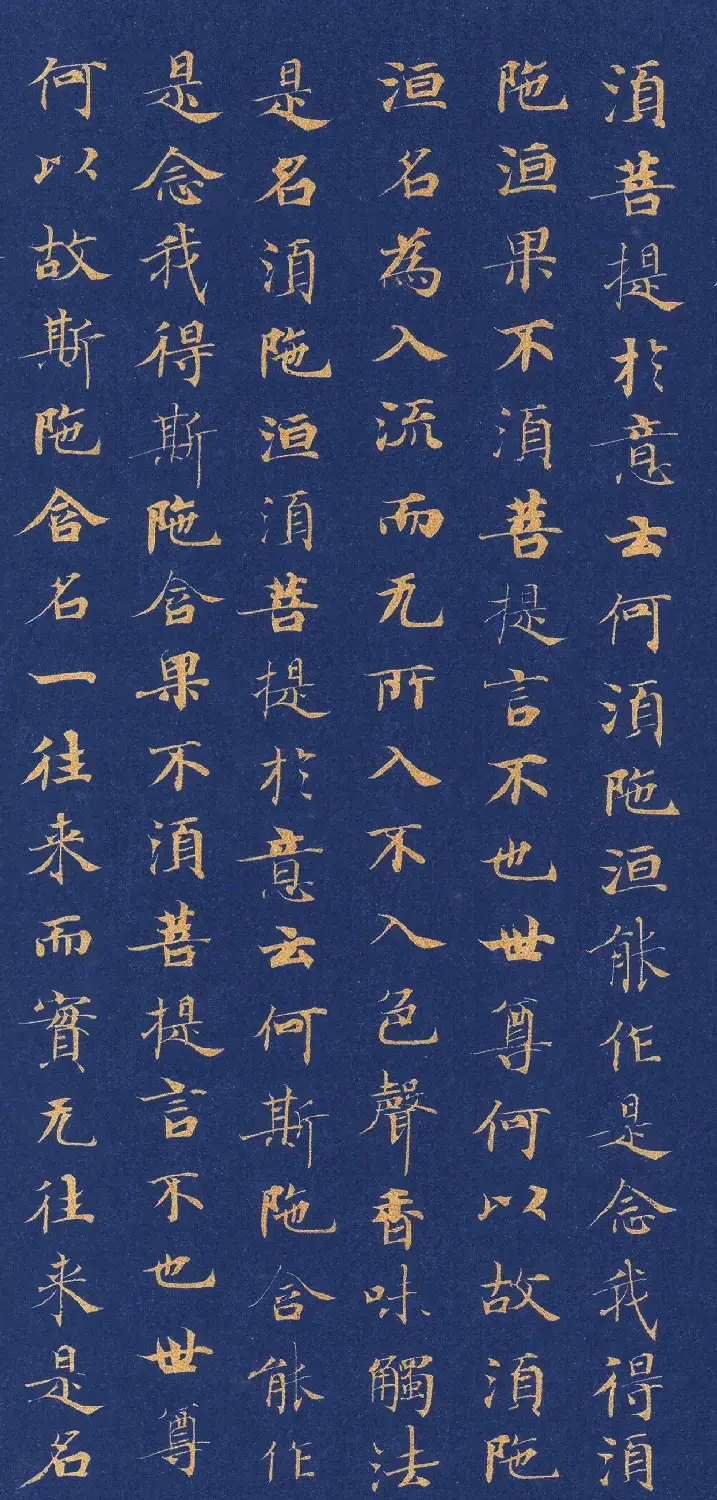 須菩提於意云何須陁洹能作是念我得須
陁洹果不須菩提言不也世尊何以故須陁
洹名為入流而无所入不入色聲香味觸法
是名須陁洹須菩提於意云何斯陁含能作
是念我得斯陁含果不須菩提言不也世尊
何以故斯陁含名一往来而實无往来是名